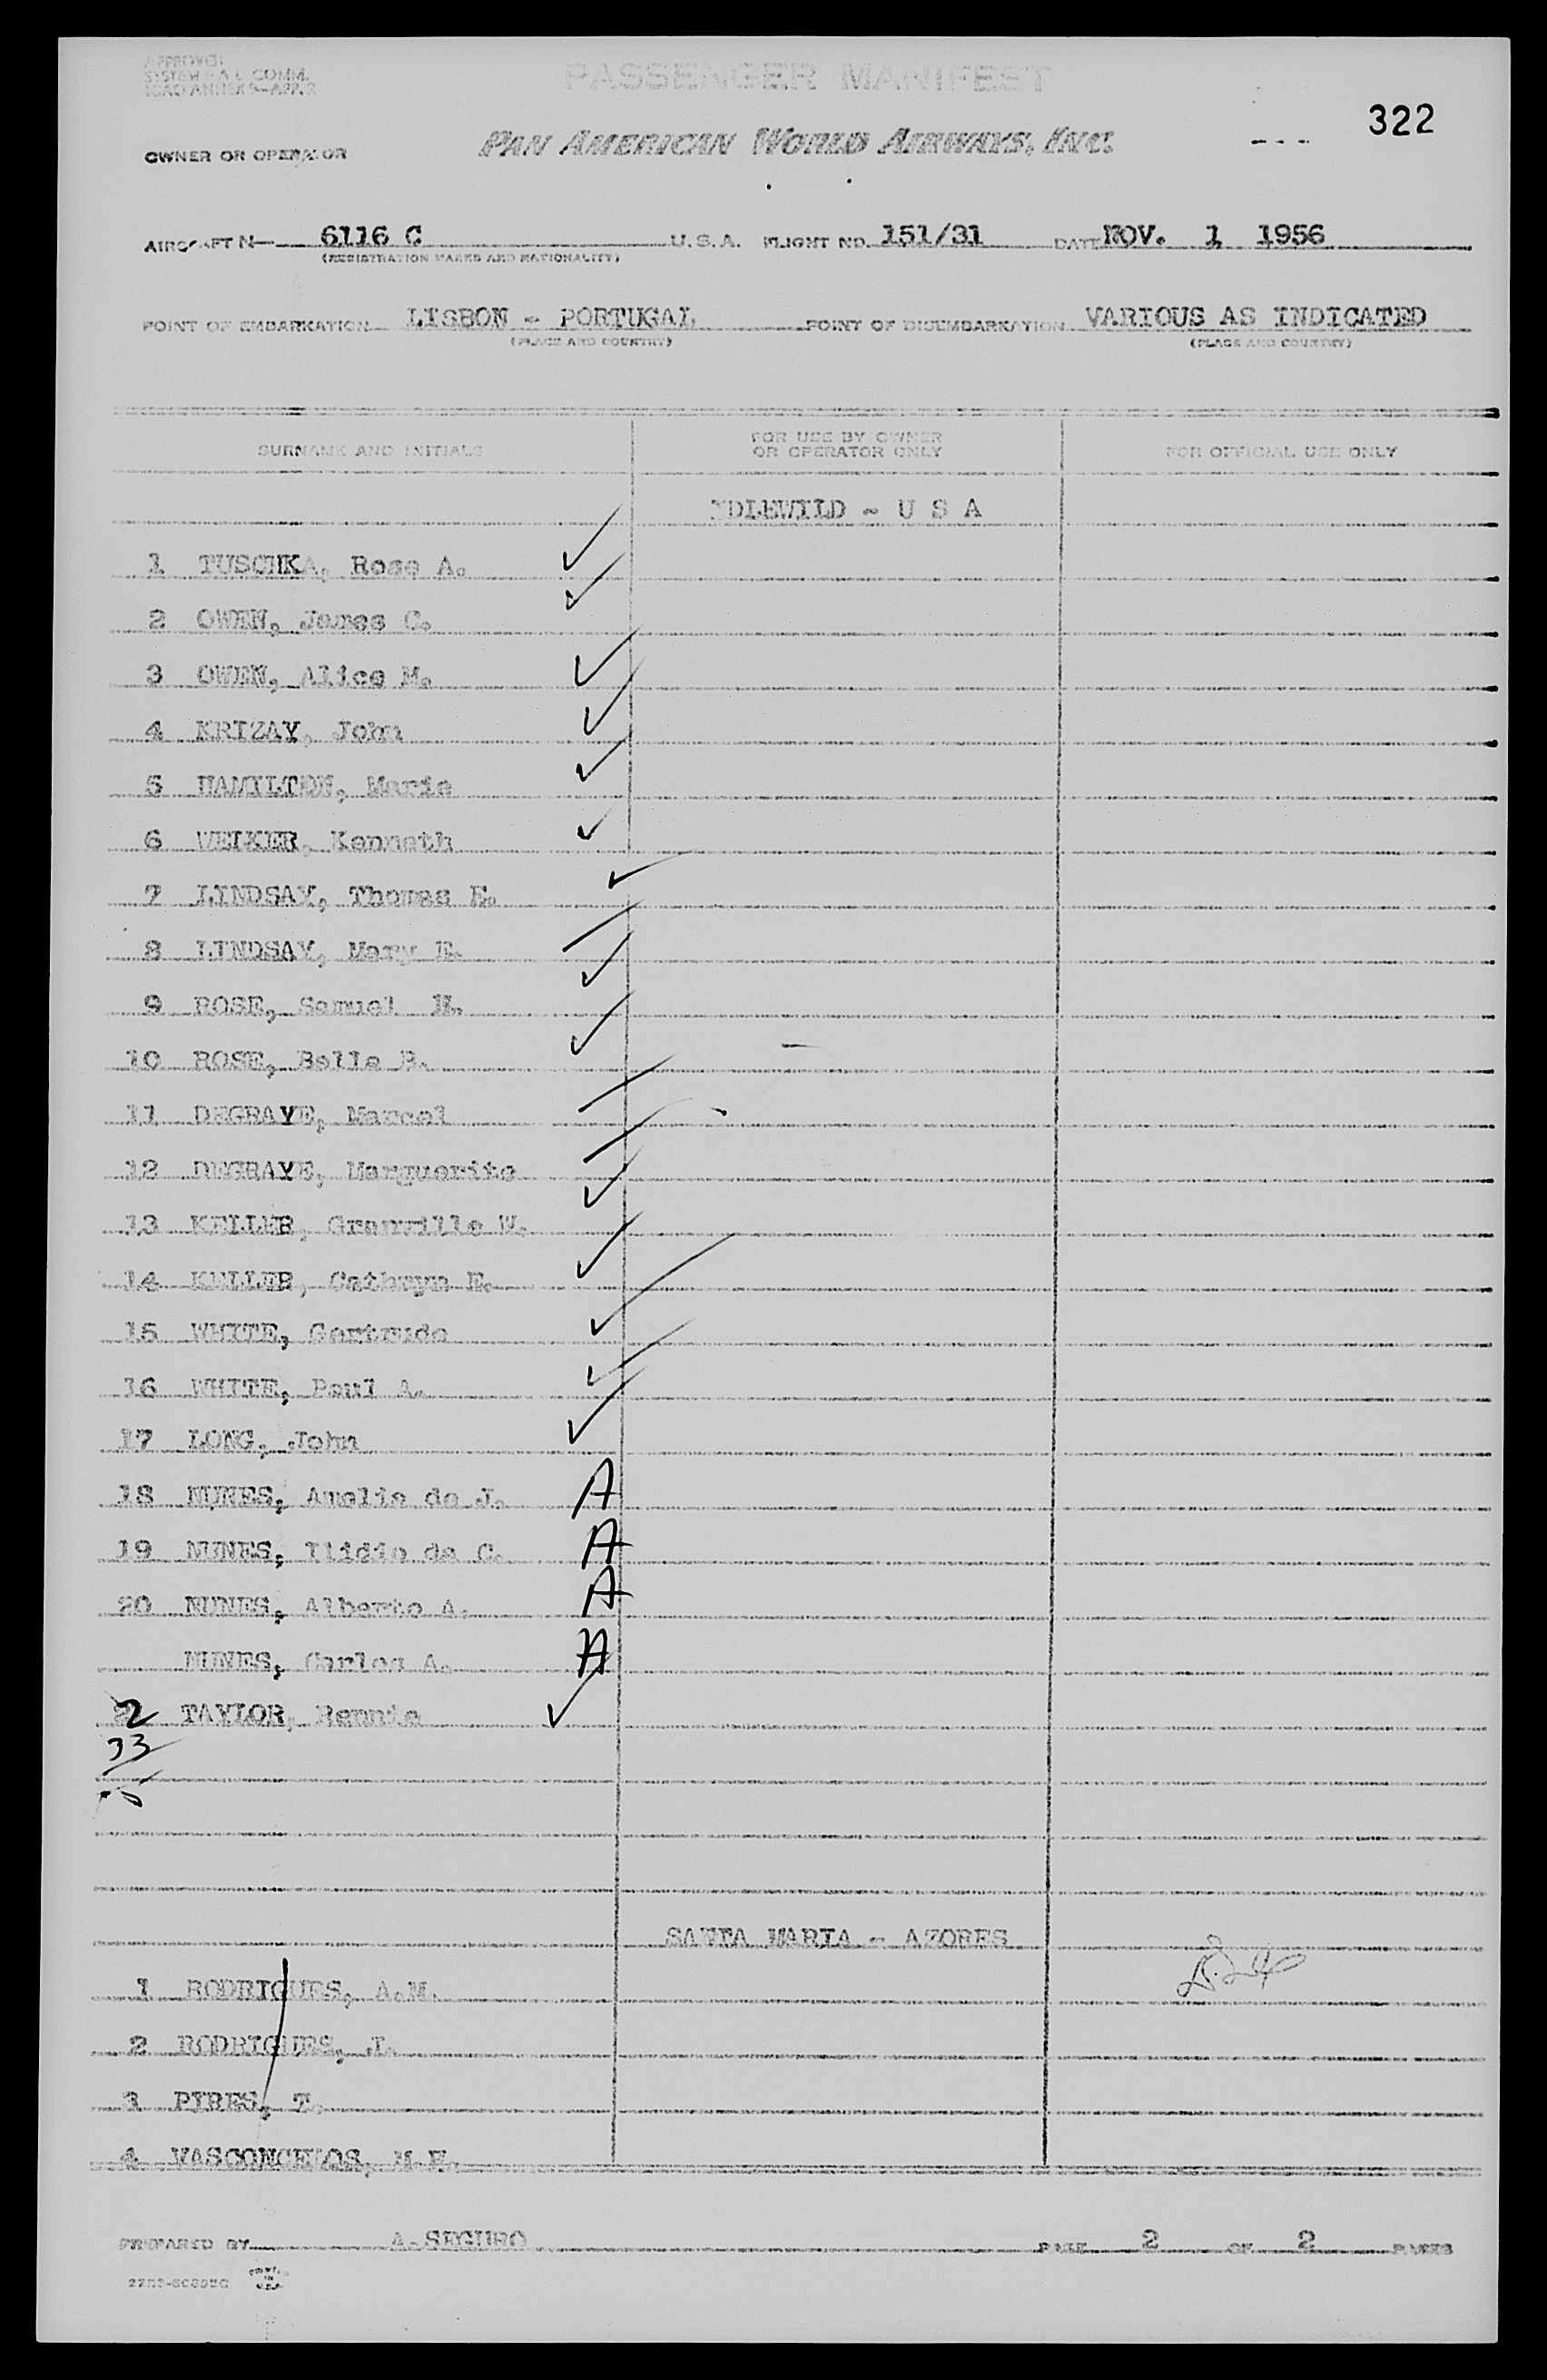 APPROVED
SYSTEM COMM.
ICAO ANNEX 9—APP. 2
PASSENGER MANIFEST
322
OWNER OR OPERATOR PAN AMERICAN WORLD AIRWAYS, INC.
AIRCRAFT N— 6116 C U.S.A. FLIGHT NO. 151/31 DATE NOV. 1 1956
(REGISTRATION MARKS AND NATIONALITY)
POINT OF EMBARKATION LISBON - PORTUGAL POINT OF DISEMBARKATION VARIOUS AS INDICATED
(PLACE AND COUNTRY) (PLACE AND COUNTRY)
SURNAME AND INITIALS FOR USE BY OWNER OR OPERATOR ONLY FOR OFFICIAL USE ONLY
IDLEWILD - U S A
1 TUSCHKA, Rose A.
2 OWEN, James C.
3 OWEN, Alice M.
4 KRIZAY, John
5 HAMILTON, Marie
6 WEIKER, Kenneth
7 LINDSAY, Thomas E.
8 LINDSAY, Mary E.
9 ROSE, Samuel H.
10 ROSE, Belle B.
11 DEGRAVE, Marcel
12 DEGRAVE, Marguerite
13 KELLER, Granville W.
14 KELLER, Cathryn E.
15 WHITE, Gertrude
16 WHITE, Paul A.
17 LONG, John
18 NUNES, Amelia de J. A
19 NUNES, Ilidio da C. A
20 NUNES, Alberto A. A
NUNES, Carlos A. A
2 TAYLOR, Rennie
33
SANTA MARIA - AZORES
1 RODRIGUES, A.M.
2 RODRIGUES, J.
3 PIRES, T.
4 VASCONCELOS, M.F.
PREPARED BY A. SEGURO PAGE 2 OF 2 PAGES
PRINTED IN U.S.A.